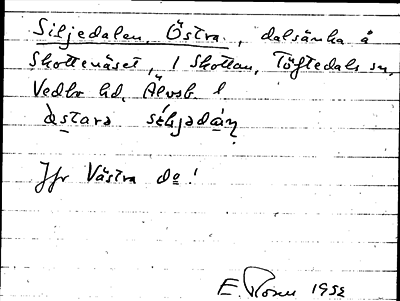 Siljedalen, Östra, dalsänka å
Skottenäset, i Skottan, Töftedals sn,
Vedbo hd, Älvsb. l
àstara
Jfr Västra do!
E. Rosen 1952